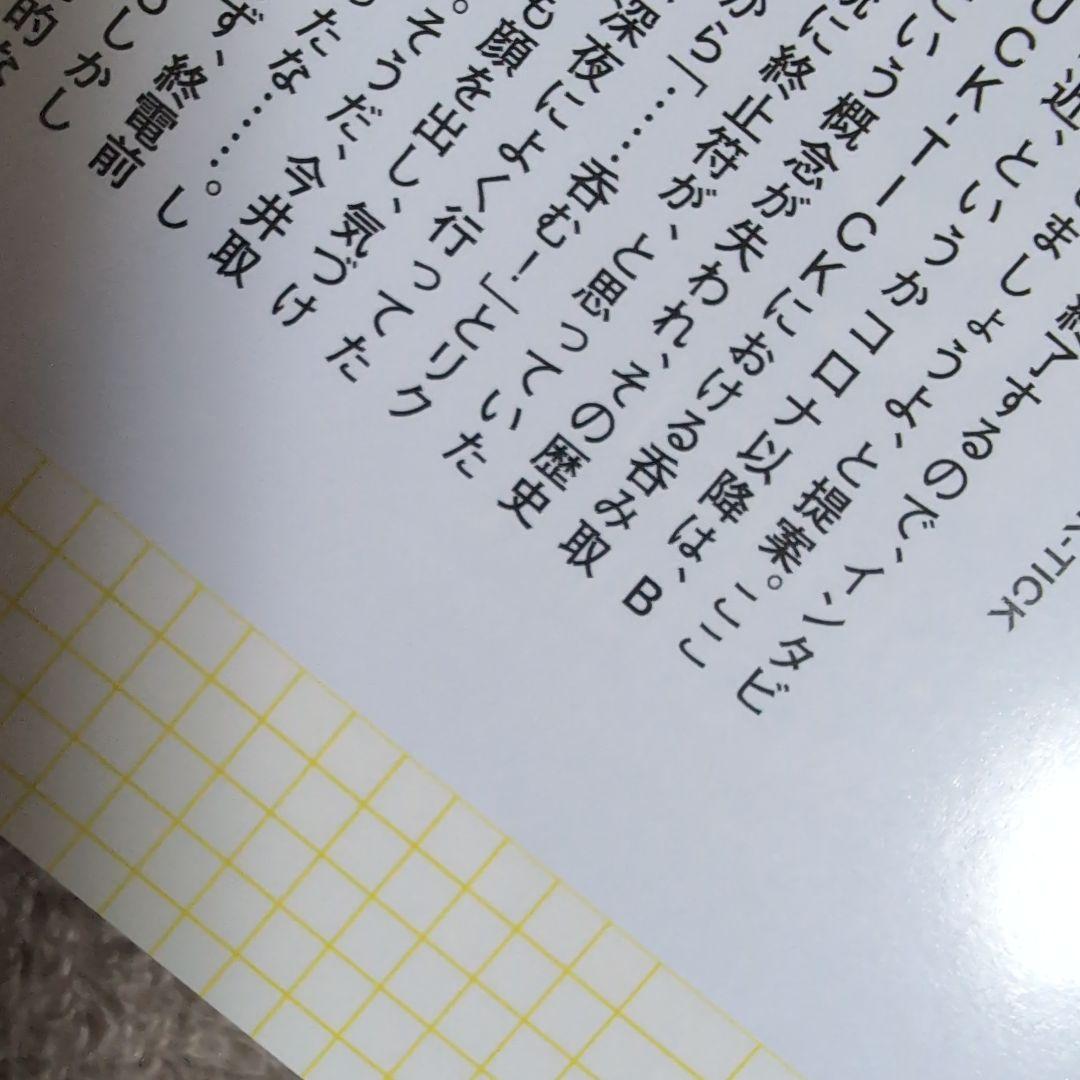 -TICK
終了するので、インタビ
しましょうよ、と提案。ここ
近、というかコロナ以降は、B
UCK-TICKにおける呑み取
という概念が失われ、その歴史
に終止符が、と思っていた
から「……呑む！」とリク
深夜によく行ってた
も顔を出し、気づけ
。そうだ、今井取
たな……。し
ず、終電前
しかし
的